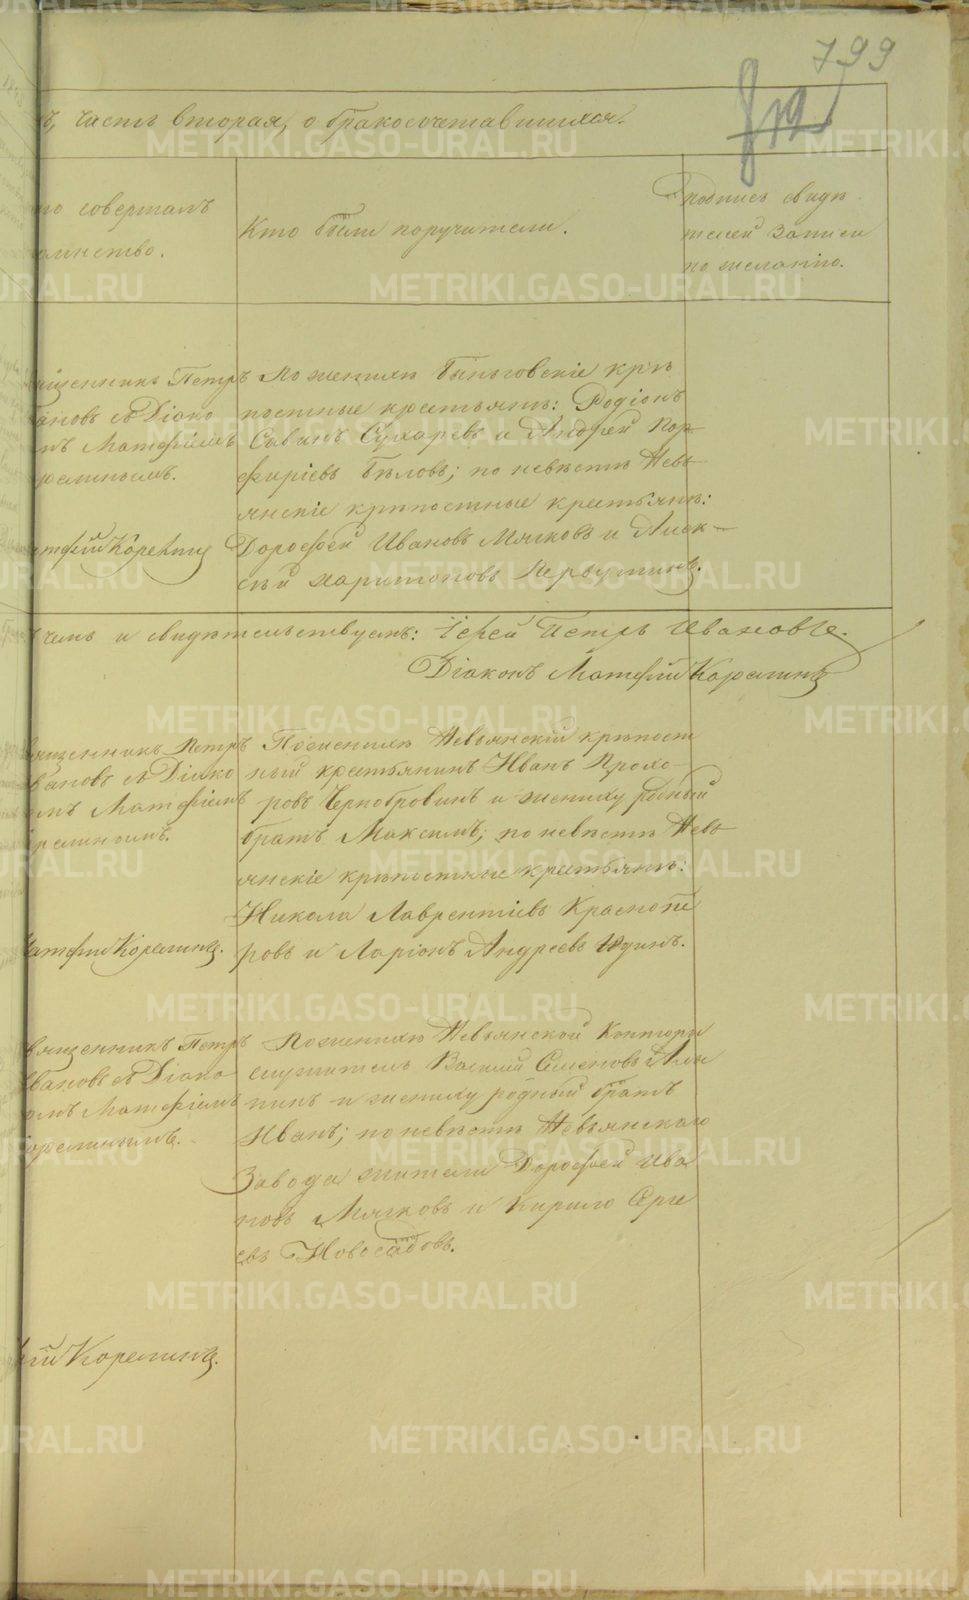 799
ъ, часть вторая, о бракосочетавшихся.
то совершалъ
таинство.
Кто были поручители.
Подпись свидѣ
телей записи
по желанію.
вященникъ Петръ
вановъ съ Діако
нъ Матфіемъ
релинымъ.
атфій Корелинъ
По женихѣ Быньговскіе крѣ
постные крестьянъ: Родіонъ
Савинъ Сухаревъ и Андрей Пор
фиріевъ Бѣловъ; по невѣстѣ Невь
янскіе крѣпостные крестьянъ:
Дорофей Ивановъ Мягковъ и Алек
сѣй Харитоновъ Первушинъ.
ъ чемъ и свидѣтельствуемъ: Іерей Петръ Ивановъ.
Діаконъ Матфій Корелинъ
вященникъ Петръ
вановъ съ Діако
мъ Матфіемъ
релиномъ.
атфій Корелинъ.
По женихѣ Невьянскій крѣпост
ный крестьянинъ Иванъ Прохо
ровъ Чернобровинъ и жениху родный
братъ Максимъ; по невѣстѣ Невь
янскіе крѣпостные крестьянъ:
Никола Лаврентіевъ Краснопе
ровъ и Ларіонъ Андреевъ Юдинъ.
вященникъ Петръ
вановъ съ Діако
омъ Матфіемъ
орелинымъ.
ій Корелинъ.
По женихѣ Невьянской Конторы
служитель Василій Семеновъ
и жениху родный братъ
Иванъ; по невѣстѣ Невьянскаго
Завода жители Дорофей Ива
новъ Мягковъ и Кирило Серге
евъ Новоседовъ.
METRIKI.GASO-URAL.RU